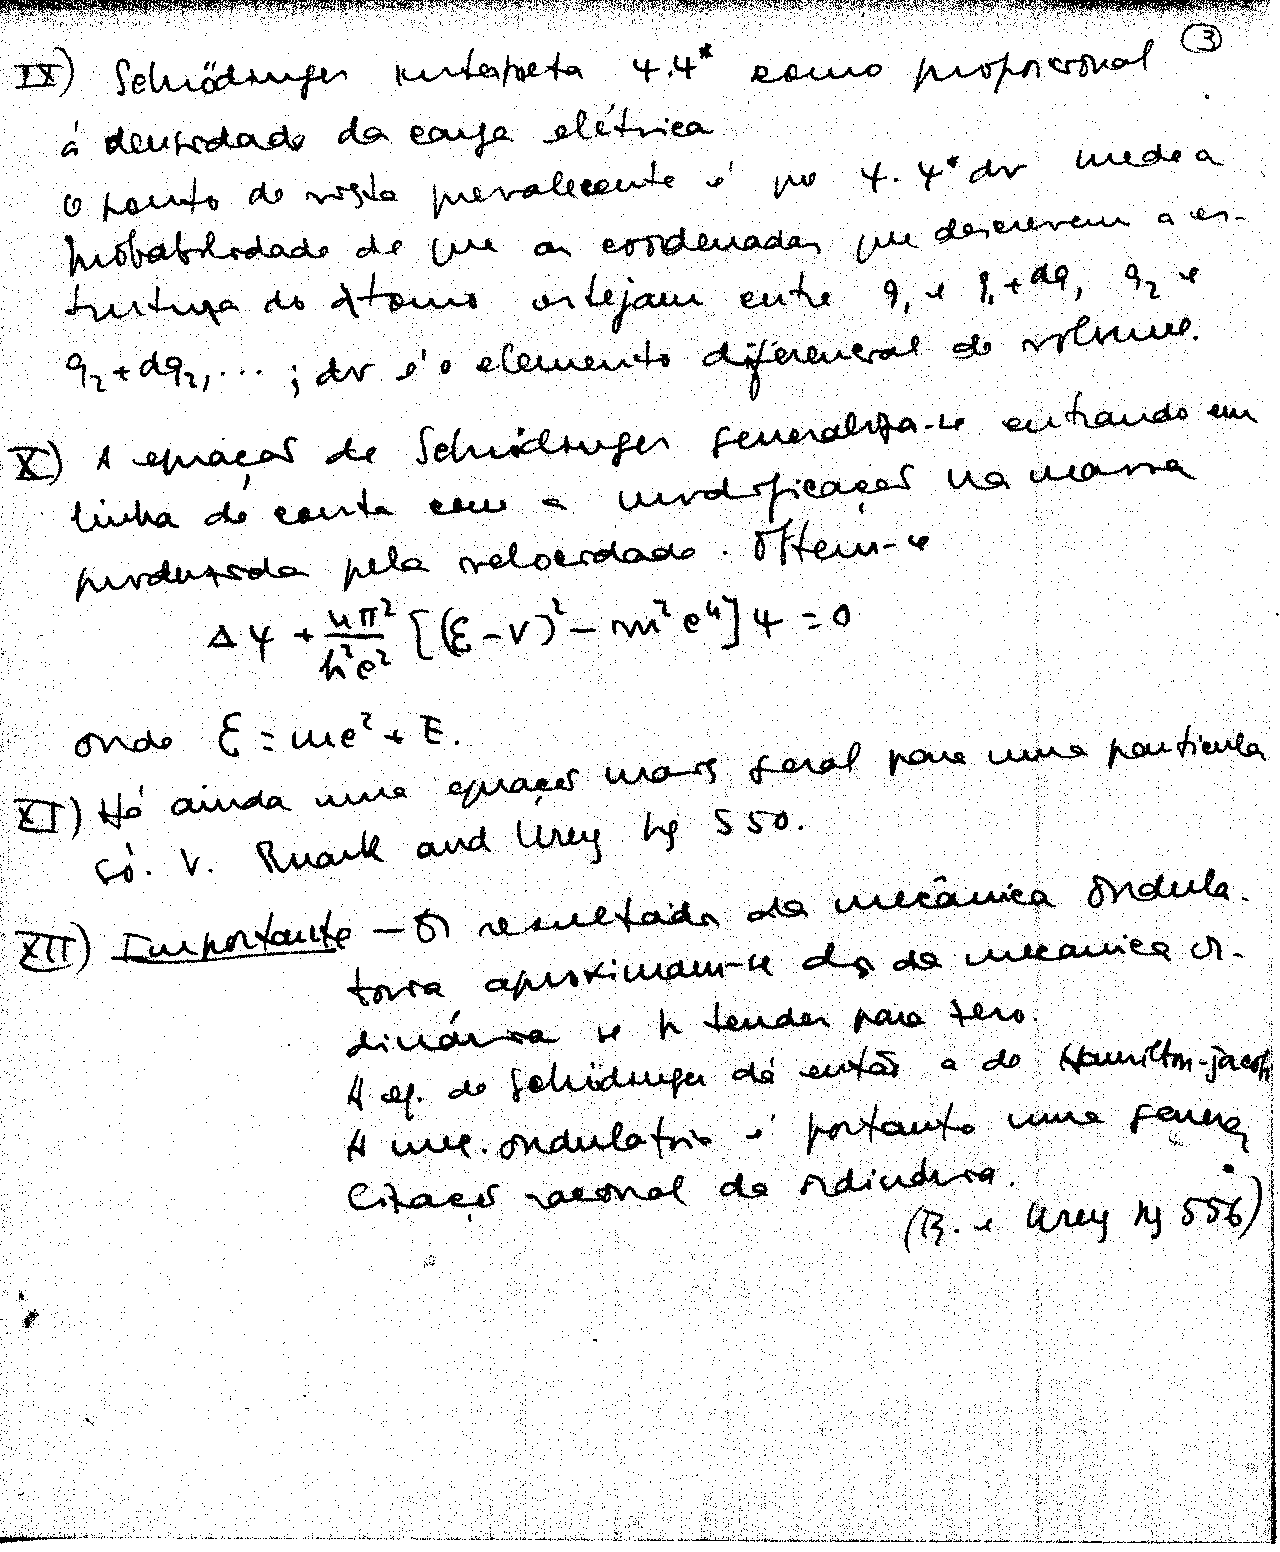 3
IX) Schrödinger interpreta ψ.ψ* como proporcional
á densidade da carga elétrica
O ponto de vista prevalecente é que ψ.ψ* dv mede a
probabilidade de que as coordenadas que descrevem a es-
trutura do átomo estejam entre q₁ e q₁+dq, q₂ e
q₂+dq₂, ... ; dv é o elemento diferencial de volume.
X) A equação de Schrödinger generaliza-se entrando em
linha de conta com a modificação na massa
produzida pela velocidade. Obtem-se
Δψ + 4π²/h²c² [(ℰ-V)² - m²c⁴]ψ = 0
onde ℰ = mc² + E.
XI) Há ainda uma equação mais geral para uma particula
só. V. Ruark and Urey pg 550.
XII) Importante - Os resultados da mecânica ondula-
toria aproximam-se dos da mecanica or-
dinária se h tender para zero.
A eq. de Schrödinger dá então a de Hamilton-Jacobi
A mec. ondulatoria é portanto uma genera
lização racional da ordinária.
(R. e Urey pg 556)